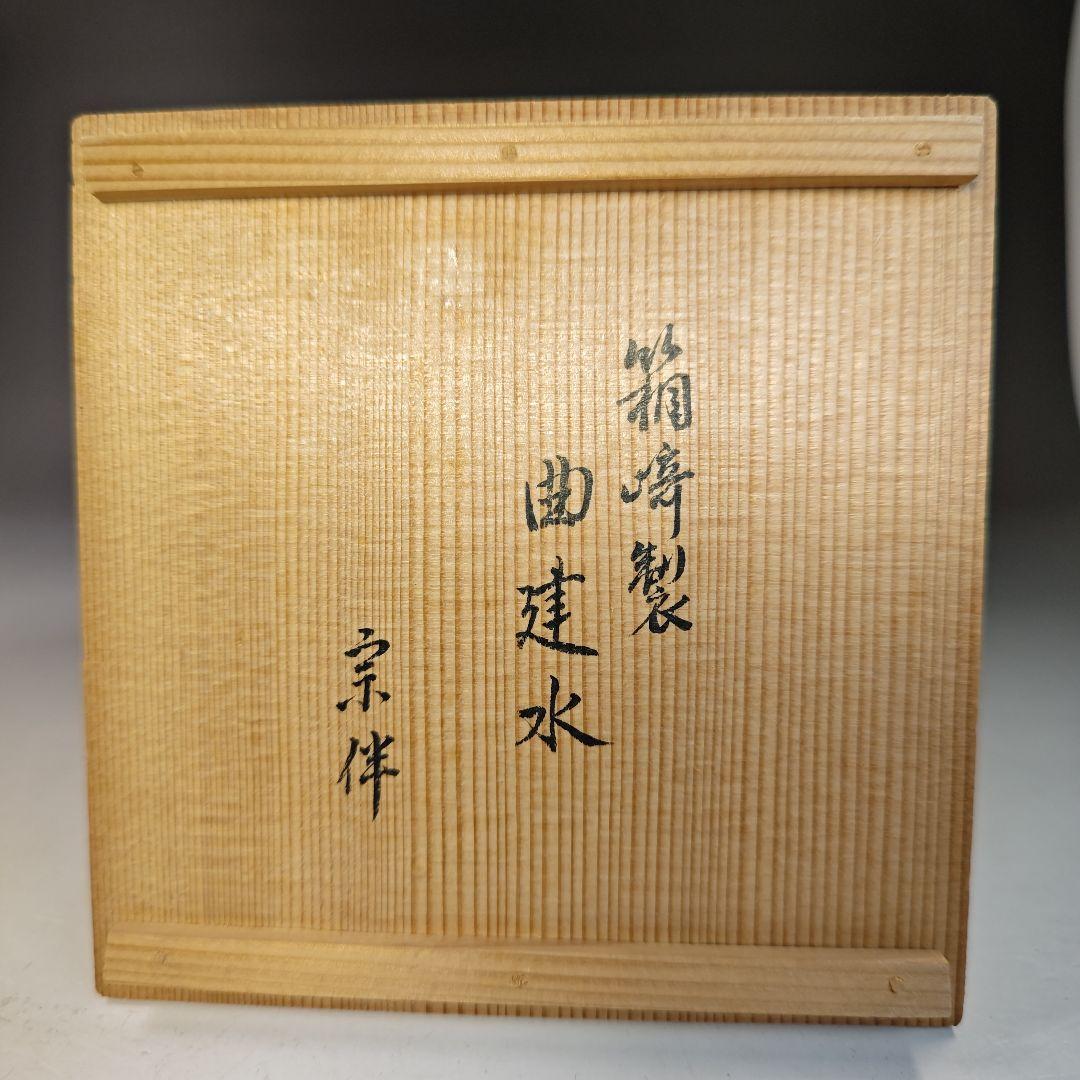 箱崎製
曲建水
宗伴